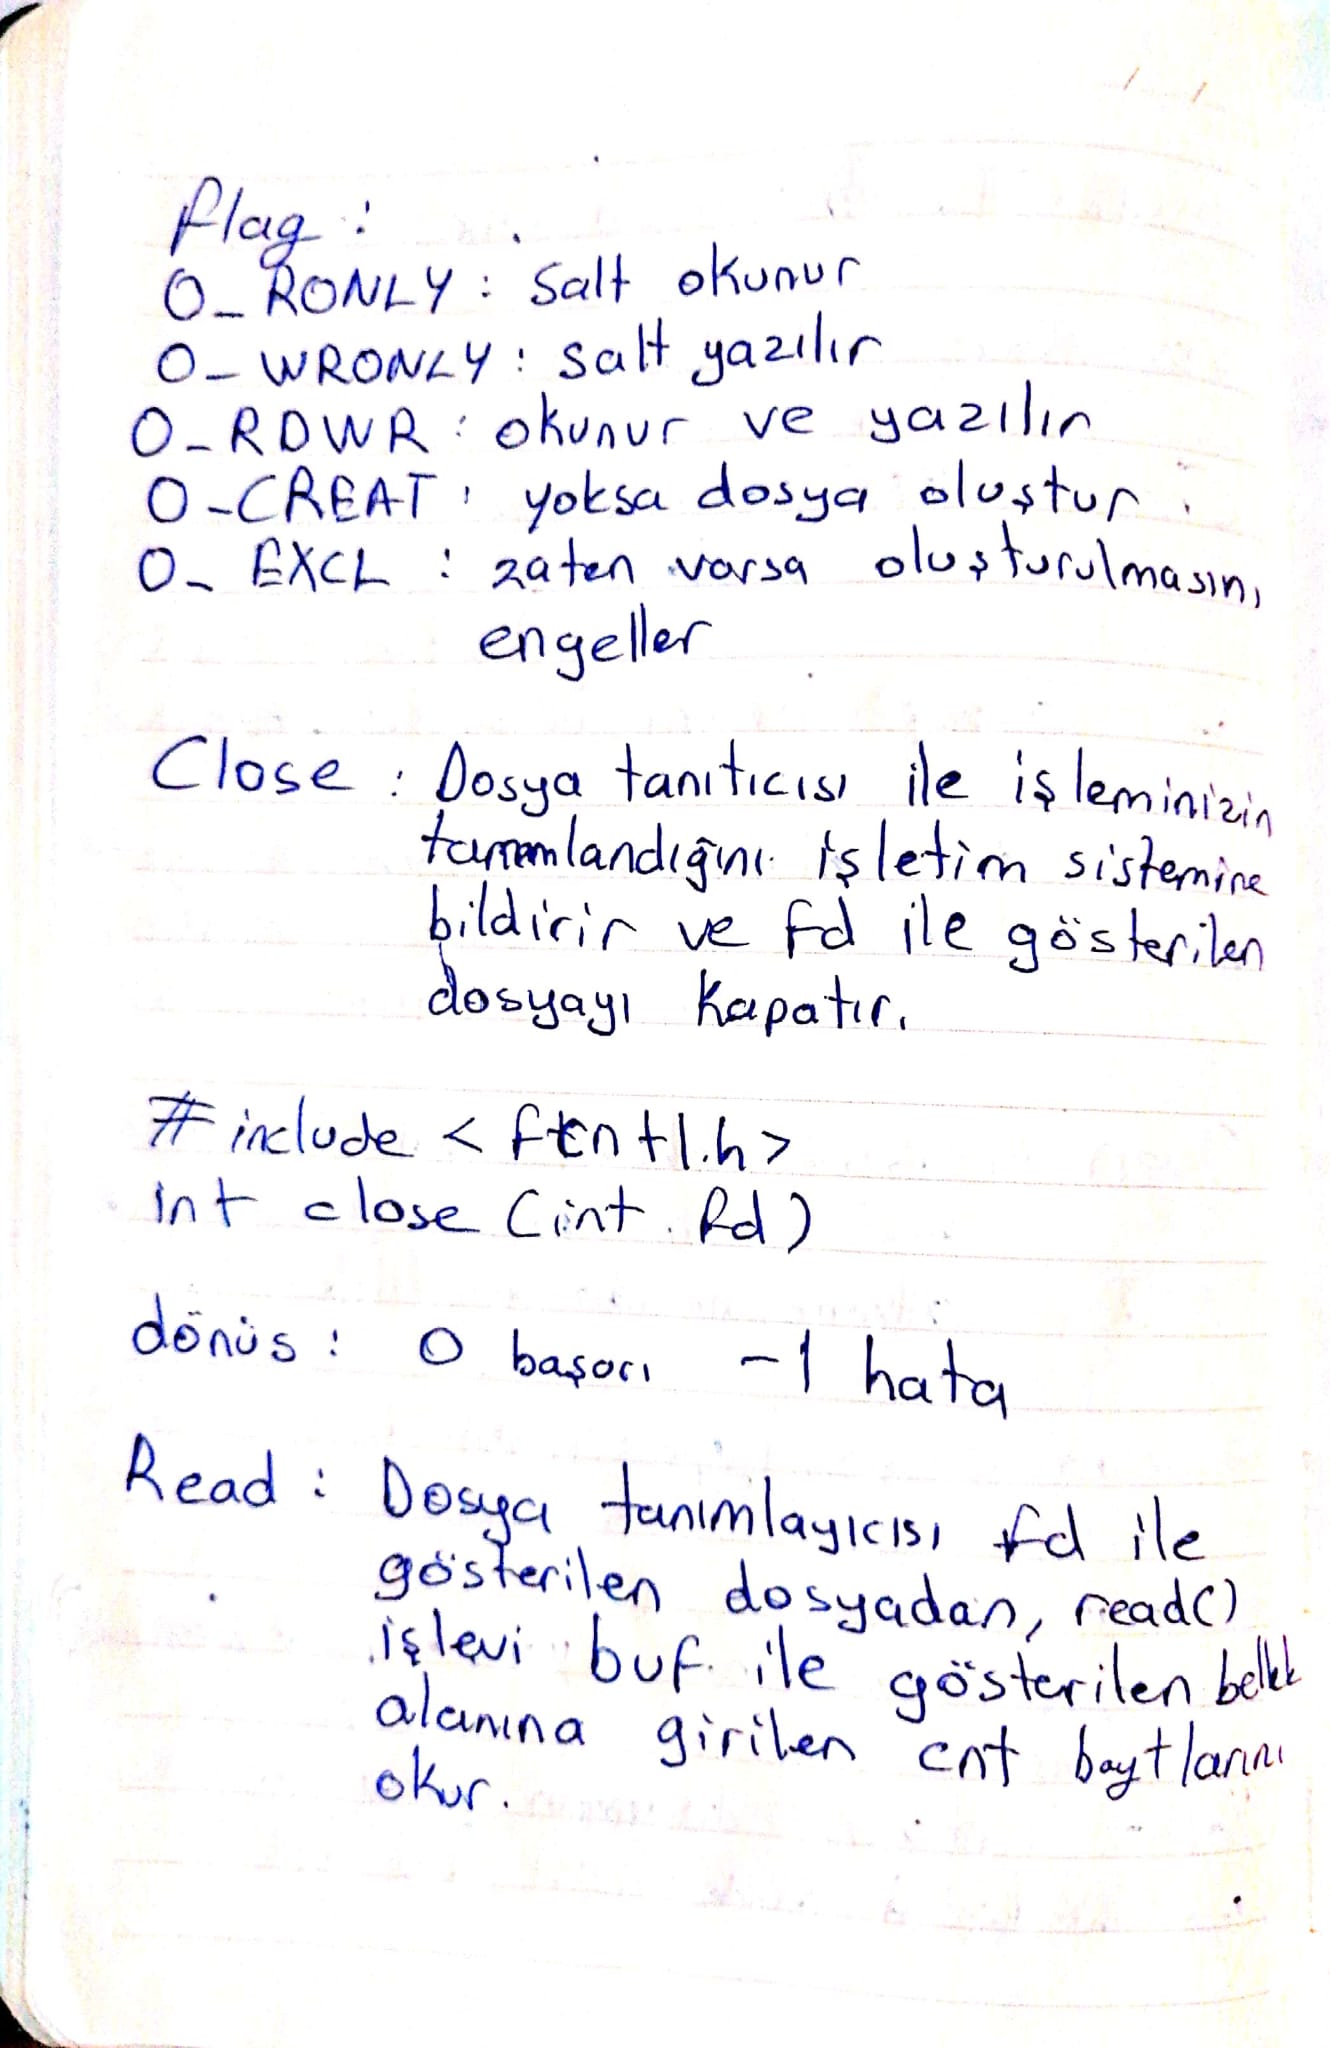 flag :
O_RONLY : salt okunur
O_WRONLY : salt yazılır
O_RDWR : okunur ve yazılır
O_CREAT : yoksa dosya oluştur.
O_EXCL : zaten varsa oluşturulmasını
engeller
Close : Dosya tanıtıcısı ile işleminizin
tamamlandığını işletim sistemine
bildirir ve fd ile gösterilen
dosyayı kapatır.
#include <fcntl.h>
int close (int fd)
dönüs : 0 başarı -1 hata
Read : Dosya tanımlayıcısı fd ile
gösterilen dosyadan, read()
işlevi buf ile gösterilen bellek
alanına girilen cnt baytlarını
okur.